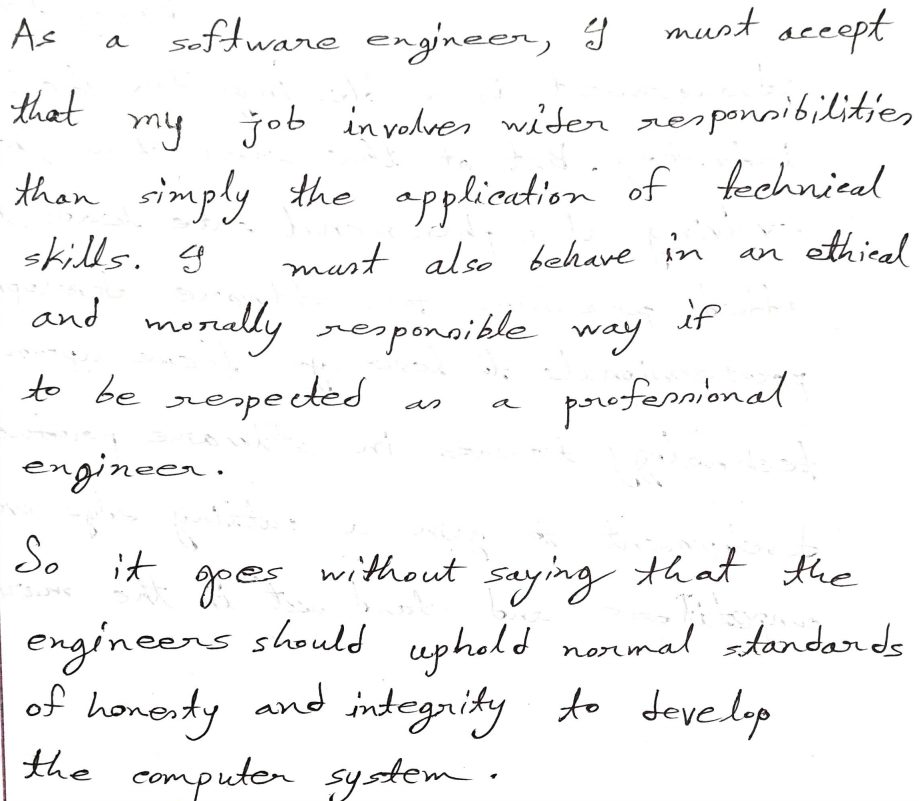 As a software engineer, I must accept
that my job involves wider responsibilities
than simply the application of technical
skills. I must also behave in an ethical
and morally responsible way if
to be respected as a professional
engineer.
So it goes without saying that the
engineers should uphold normal standards
of honesty and integrity to develop
the computer system.